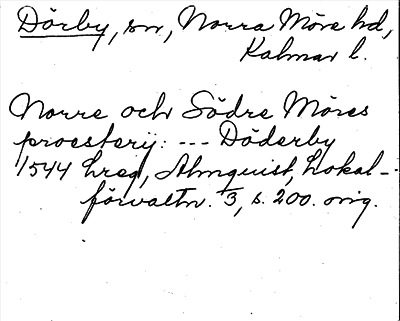 Dörby, sn, Norra Möre hd,
Kalmar l.
Norre och Södre Möres
proesterij: --- Döderby
1544 hreg, Almquist, Lokal-
förvaltn. 3, s. 200. orig.